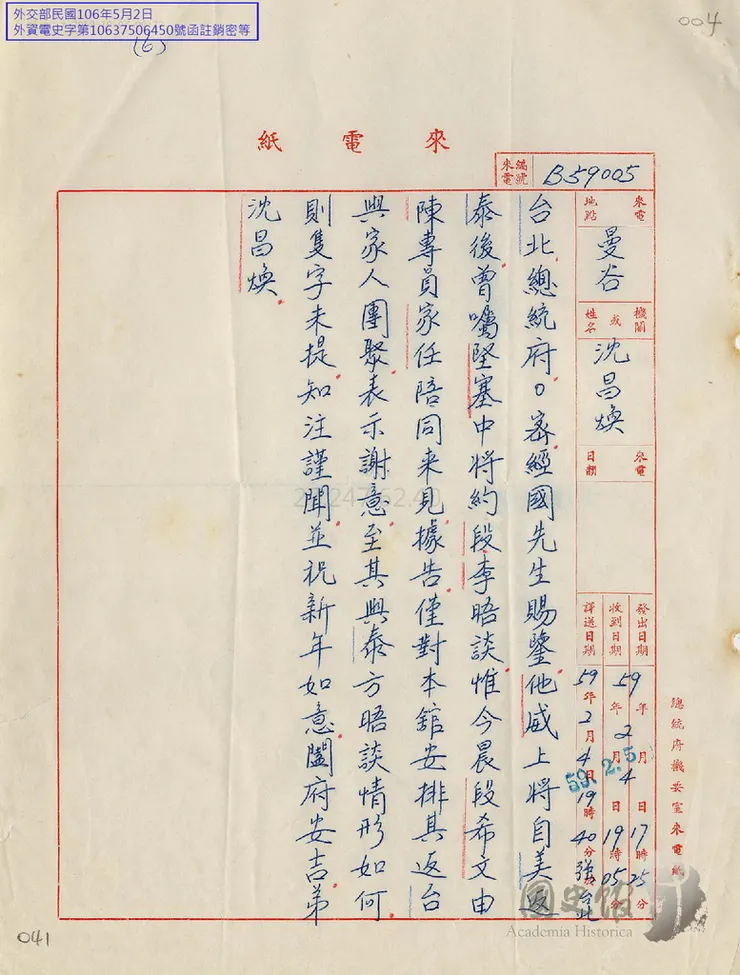 外交部民國106年5月2日
外資電史字第10637506450號函註銷密等
(6)
004
來電紙
來電編號 B59005
來電地點 曼谷
機關或姓名 沈昌煥
來電日期
發出日期 59年2月4日17時25分
收到日期 年月日19時05分
譯送日期 59年2月4日19時40分
59.2.5
總統府機要室來電紙
台北總統府○密經國先生賜鑒他威上將自美返
泰後曾囑堅塞中將約段李晤談惟今晨段希文由
陳專員家任陪同來見據告僅對本舘安排其返台
與家人團聚表示謝意至其與泰方晤談情形如何
則隻字未提知注謹聞並祝新年如意闔府安吉弟
沈昌煥
國史館
Academia Historica
041